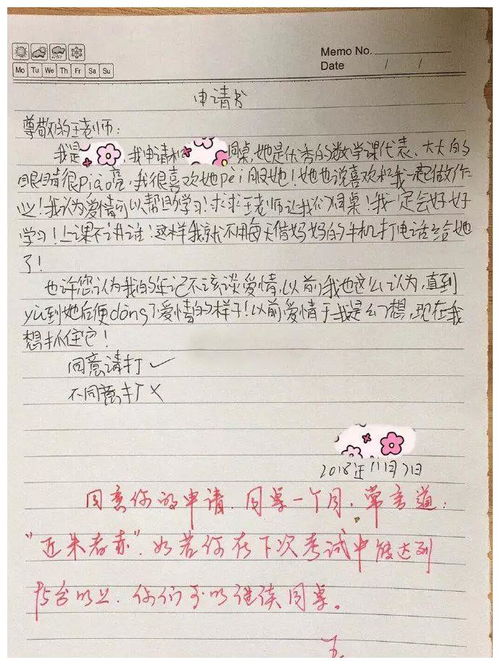 Memo No.
Mo Tu We Th Fr Sa Su
Date / /
申请书
尊敬的王老师:
我是 ,我申请和 同桌,她是优秀的数学课代表、大大的
眼睛很piào亮,我很喜欢她pèi服她!她也说喜欢和我一起做作
业!我认为爱情可以帮助学习!求求王老师让我们同桌!我一定会好好
学习!上课不讲话!这样我就不用每天借妈妈的手机打电话给她
了!
也许您认为我的年记不该谈爱情,以前我也这么认为,直到
yù到她后便dǒng了爱情的样子!以前爱情于我是幻想,现在我
想抓住它!
同意请打✓
不同意打×
2018年11月7日
同意你的申请,同桌一个月,常言道:
"近朱者赤",如若你在下次考试中能达到
95分以上,你们可以继续同桌。